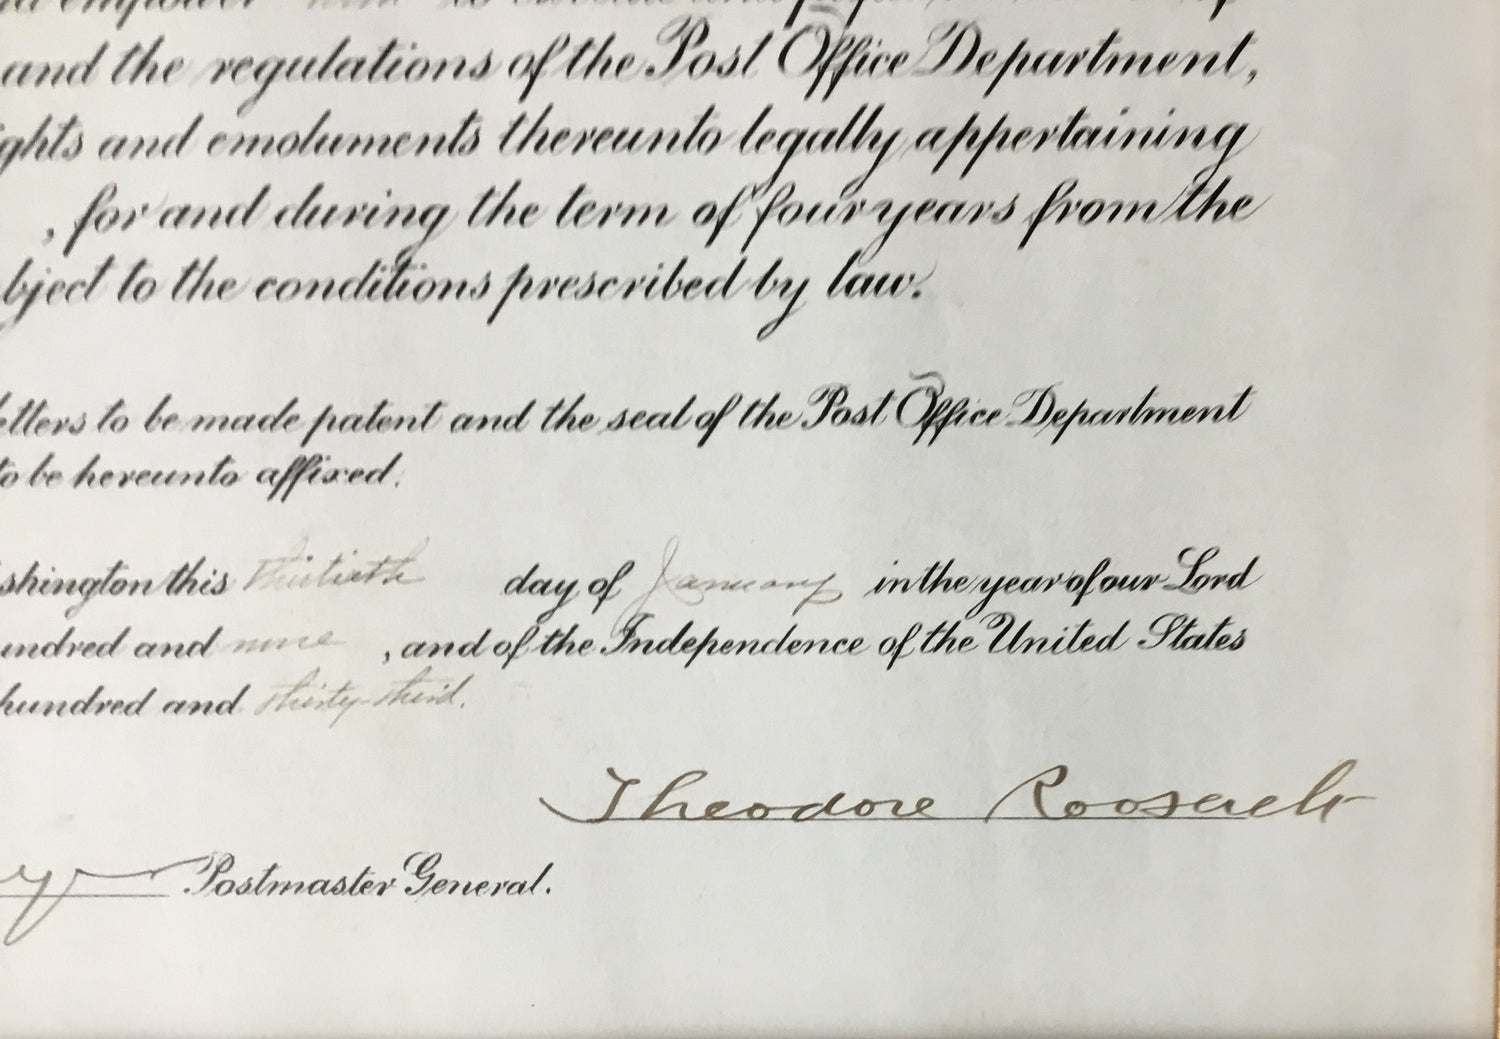 and the regulations of the Post Office Department,
ghts and emoluments thereunto legally appertaining
, for and during the term of four years from the
bject to the conditions prescribed by law.
etters to be made patent and the seal of the Post Office Department
to be hereunto affixed.
shington this Thirtieth day of January in the year of our Lord
undred and nine , and of the Independence of the United States
hundred and thirty-third.
Theodore Roosevelt
Postmaster General.